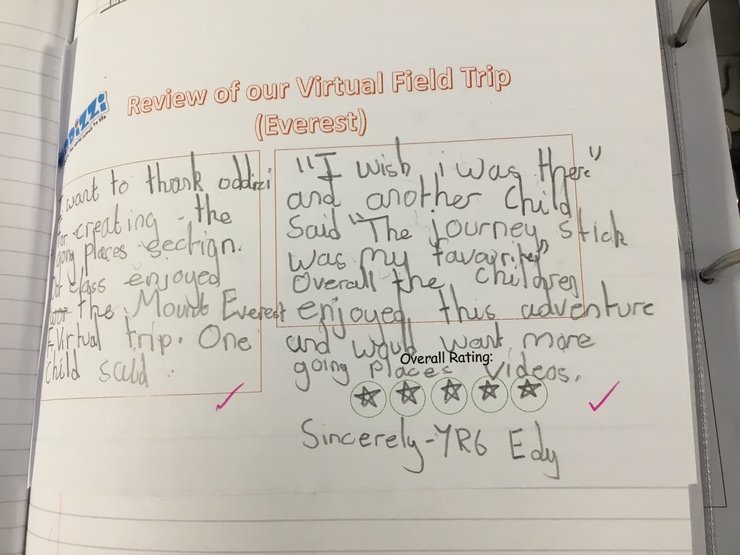 Review of our Virtual Field Trip
(Everest)
want to thank oddizi
for creating the
going places section.
class enjoyed
the Mount Everest
Virtual trip. One
child said
"I wish i was there"
and another child
Said "The journey stick
was my favourite"
Overall the children
enjoyed this adventure
and would want more
going places videos.
Overall Rating:
Sincerely-YR6 Edy